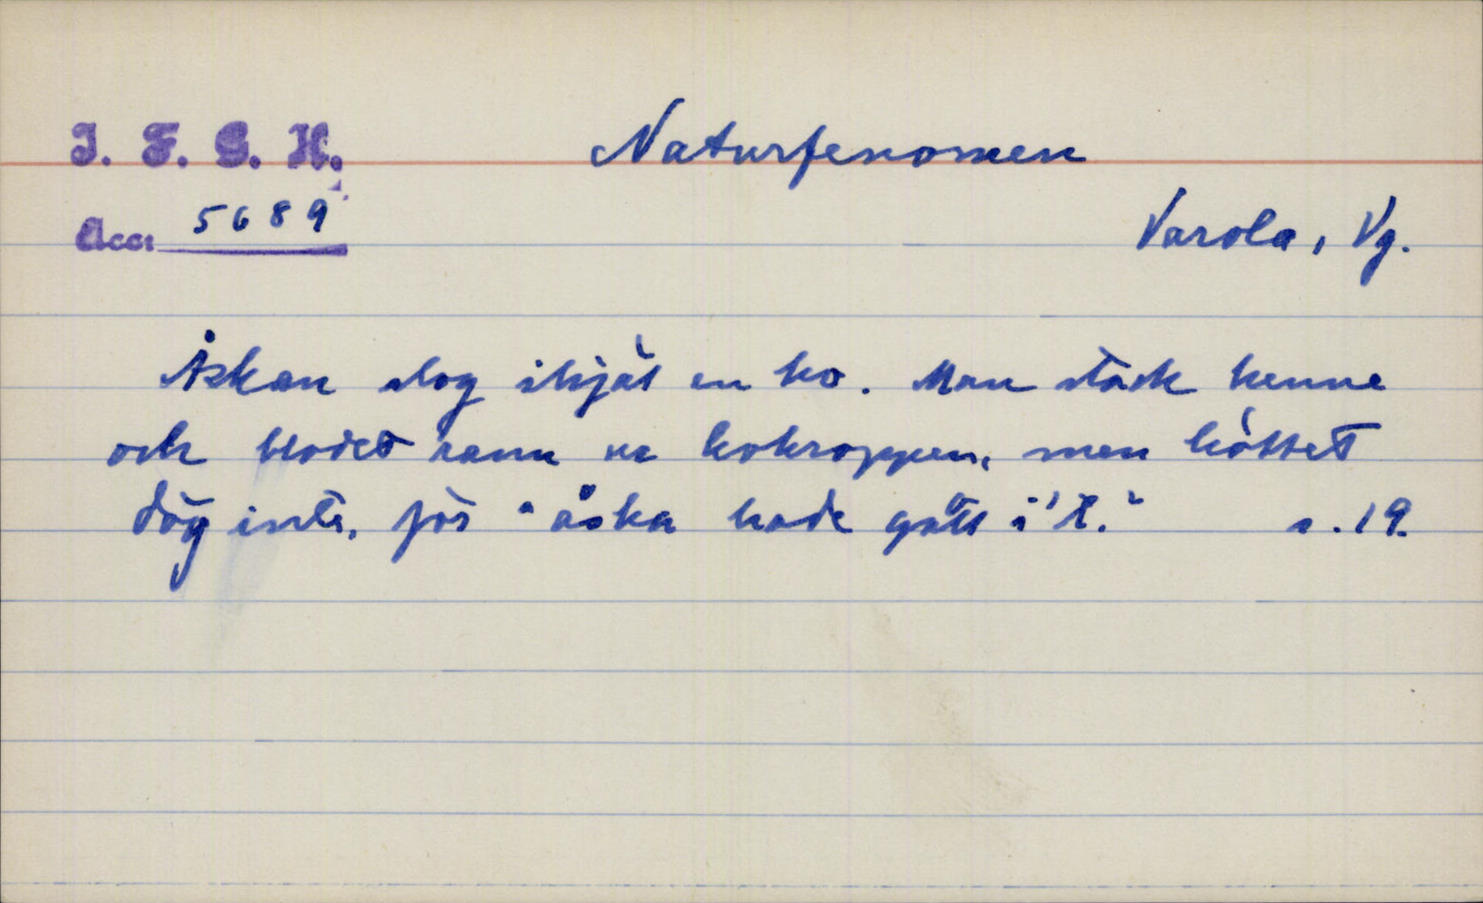 I. F. G. H.
Naturfenomen
Acc. 5689
Varola, Vg.
Åskan slog ihjäl en ko. Man stack henne
och blodet rann ur kokroppen, men köttet
dög inte, för "åska hade gått i 't."
s. 19.